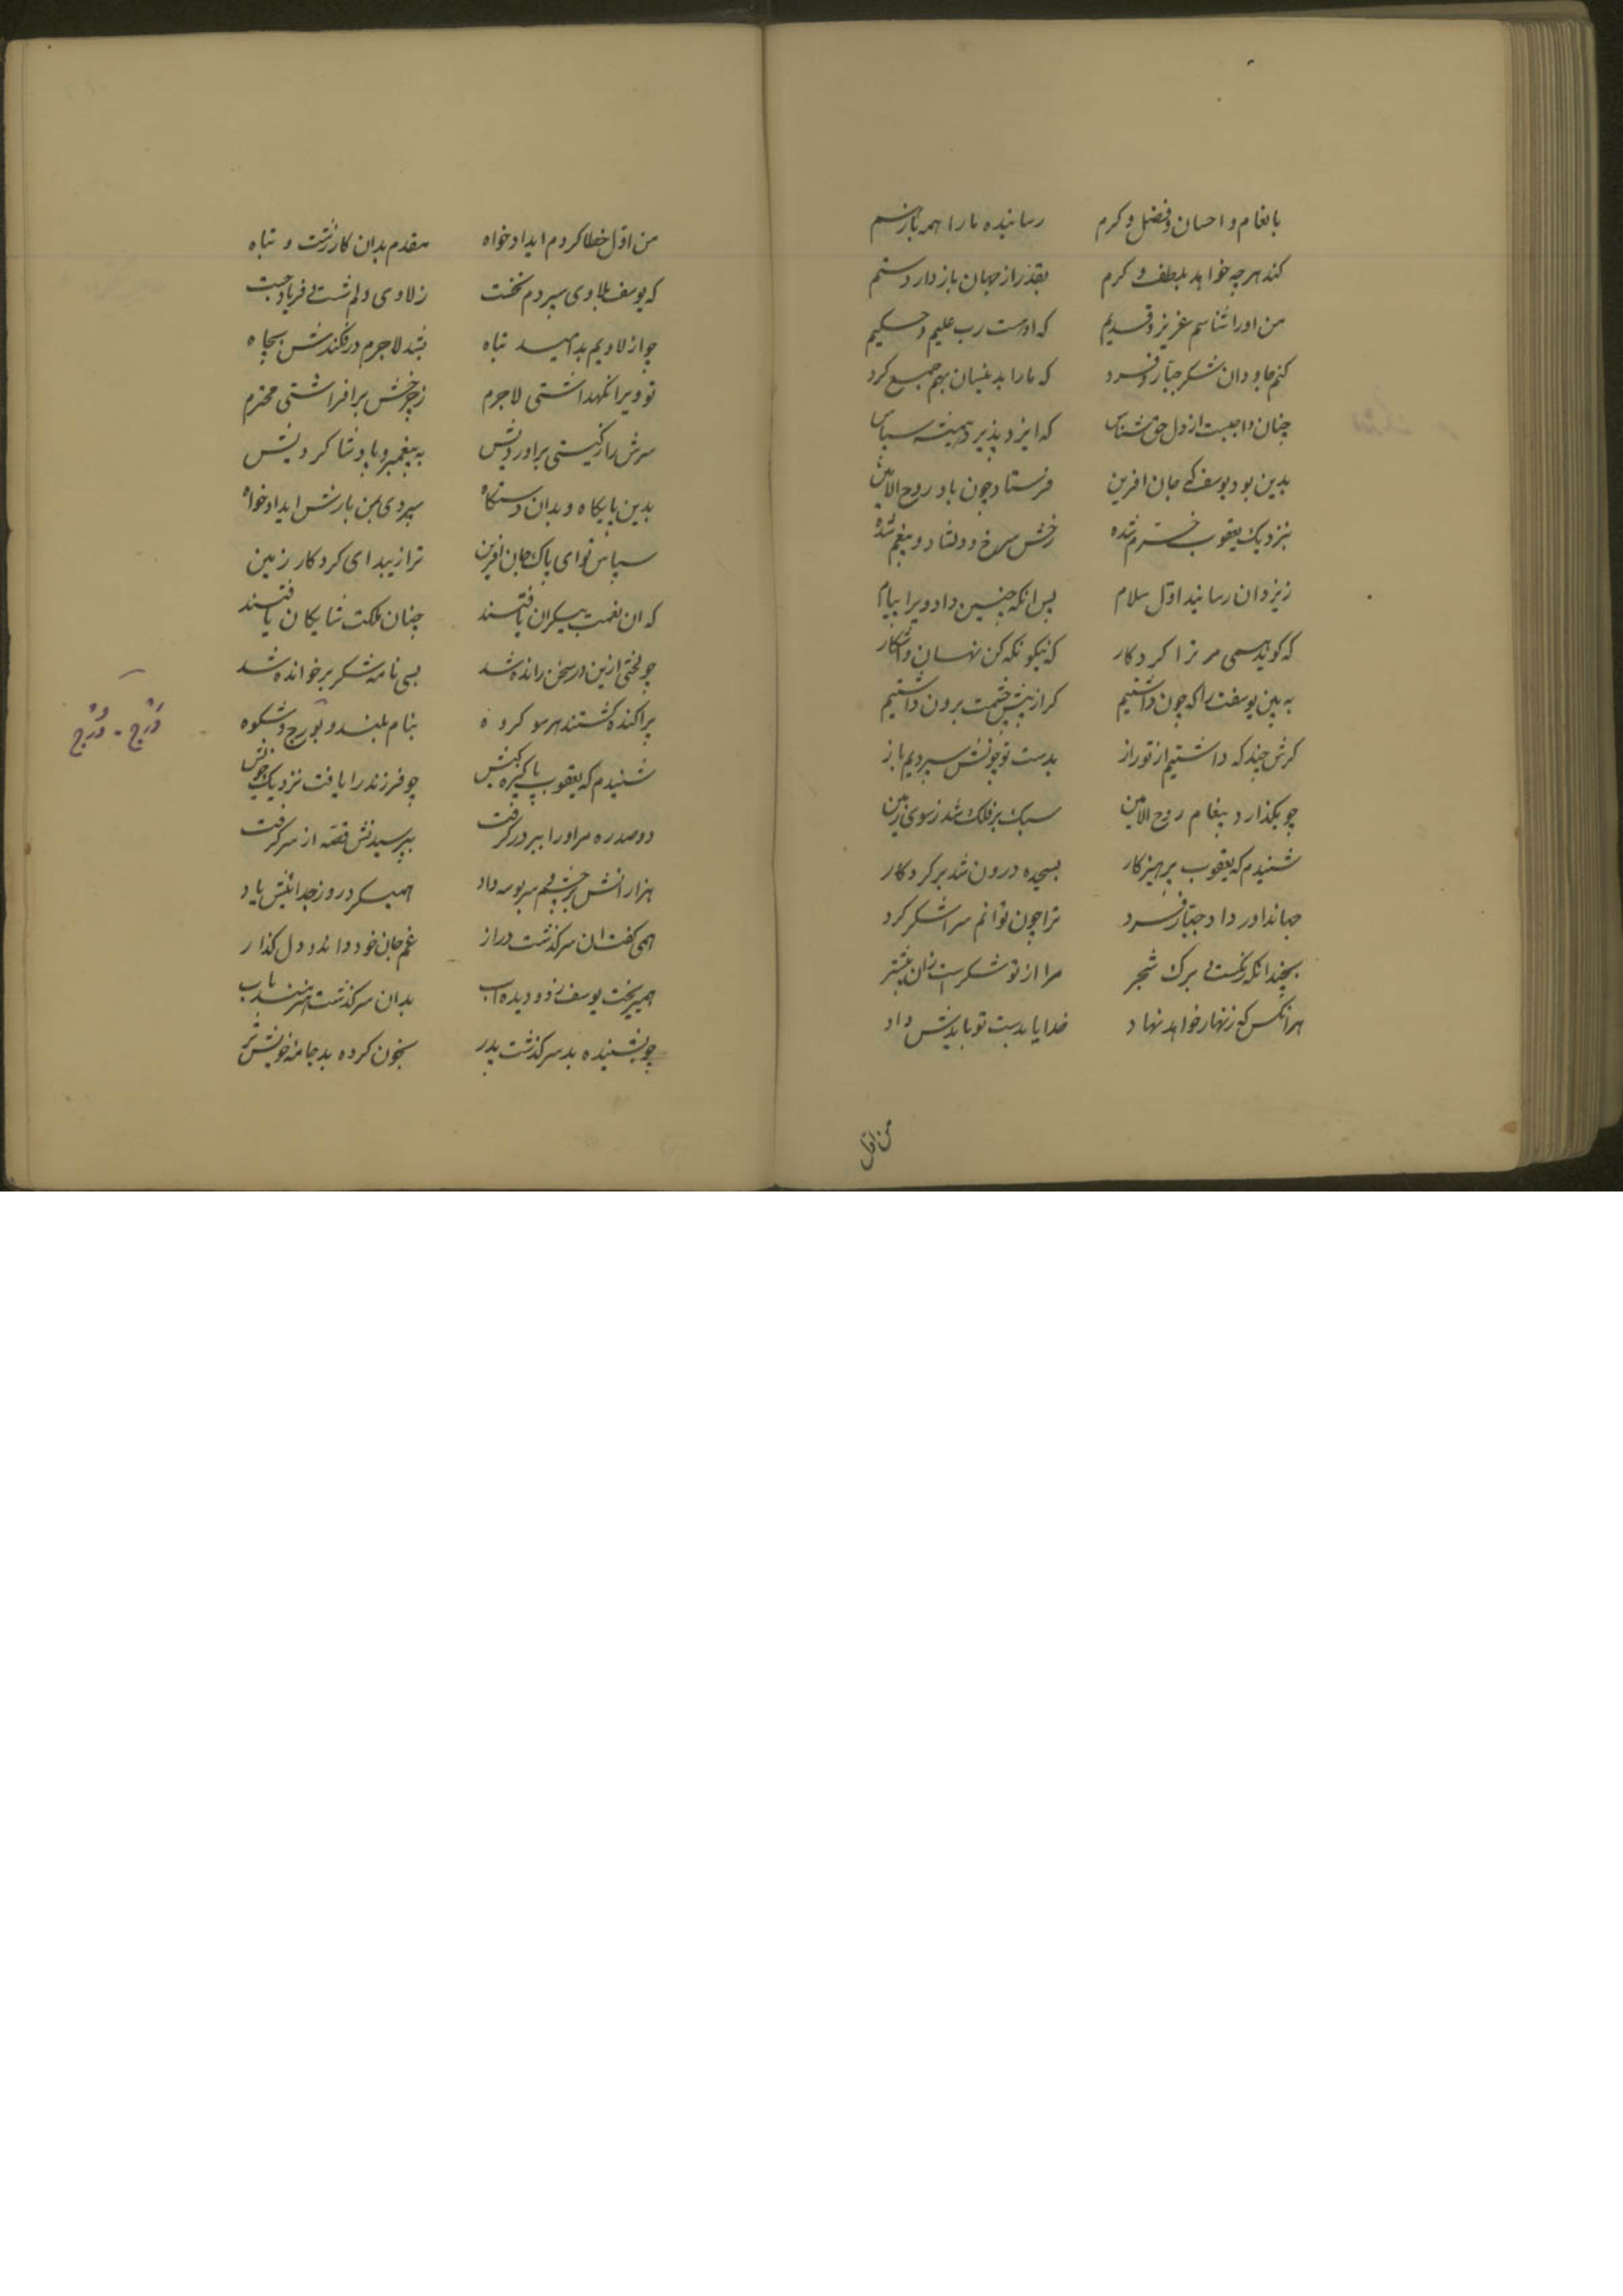 بانعام و احسان و فضل و کرم رسانیده ما را همه بازبهم
کند هرچه خواهد بلطف و کرم بقدر از جهان باز دارد ستم
من او را شناسم عزیز و قدیم که اوست رب علیم و حکیم
کنم جاودان شکر جبار فرد که ما را بدینسان بهم جمع کرد
چنان واجبست از دل حق شناس که ایزد پذیرد همیشه سپاس
بدین بود یوسف که جان افرین فرستاد چون باد روح الامین
بنزدیک یعقوب خرم شده رخش سرخ و دلشاد و بیغم شده
زیزدان رسانید اول سلام پس انکه چنین داد ویرا پیام
که کوید همی مر ترا کردکار که نیکو نکه کن نهان و اشکار
به بین یوسفت را که چون داشتیم کر از پیش چشمت برون داشتیم
کرش چند که داشتیم از تو راز بدست تو چونش سپردیم باز
چو بکذارد پیغام روح الامین سبک بر فلک شد ز سوی زمین
شنیدم که یعقوب پرهیزکار بسجده درون شد بر کردکار
جهاندار و دادار جبار فرد ترا چون توانم سرا شکر کرد
بچندانکه رنکست بر برک شجر مرا از تو شکرست زان بیشتر
هر انکس که زنهار خواهد نهاد خدایا بدست تو بایدش داد
من اول
من اول خطا کردم ای دادخواه مقدم بدان کار زشت و تباه
که یوسف بلاوی سپردم نخست ز لاوی دلم شت فریاد جست
چو از لاویم بد امید تباه بشد لاجرم در فکندش بچاه
تو ویرا نکهداشتی لاجرم ز چرخش برافراشتی محترم
سرش را ز کیستی براوردیش به پیغمبر و پادشا کردیش
بدین پایکاه و بدان دستکاه سپردی بمن بازش ای دادخواه
سپاس تو ای پاک جان افرین ترا زیبد ای کردکار زمین
که ان نعمت بیکران یافتند چنان ملکت شایکان یافتند
چو لختی ازین در سخن رانده شد بسی نامه شکر برخوانده شد
پراکنده کشتند هر سو کروه بنام بلند و بورج و شکوه
وَرْج - وُرْج
شنیدم که یعقوب پاکیزه کیش چو فرزند را یافت نزدیک خویش
دوصد ره مر او را ببر در کرفت بپرسیدنش قصه از سر کرفت
هزارانش بر چشم و سر بوسه داد همیکرد روز جدائیش یاد
همی کفت ان سرکذشت دراز غم جان خود و اندوه دل کداز
همیریخت یوسف ز دو دیده اب بدان سرکذشت
چو بشنیده بد سرکذشت پدر بخون کرده بد جامه خویش تر